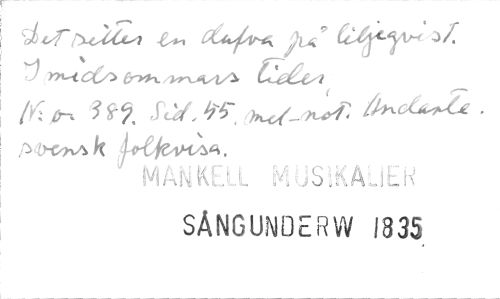 Det sitter en dufva på liljeqvist.
I midsommars tider
N:o 389. Sid. 55. mel-not. Andante.
svensk folkvisa.
MANKELL MUSIKALIER
SÅNGUNDERW 1835